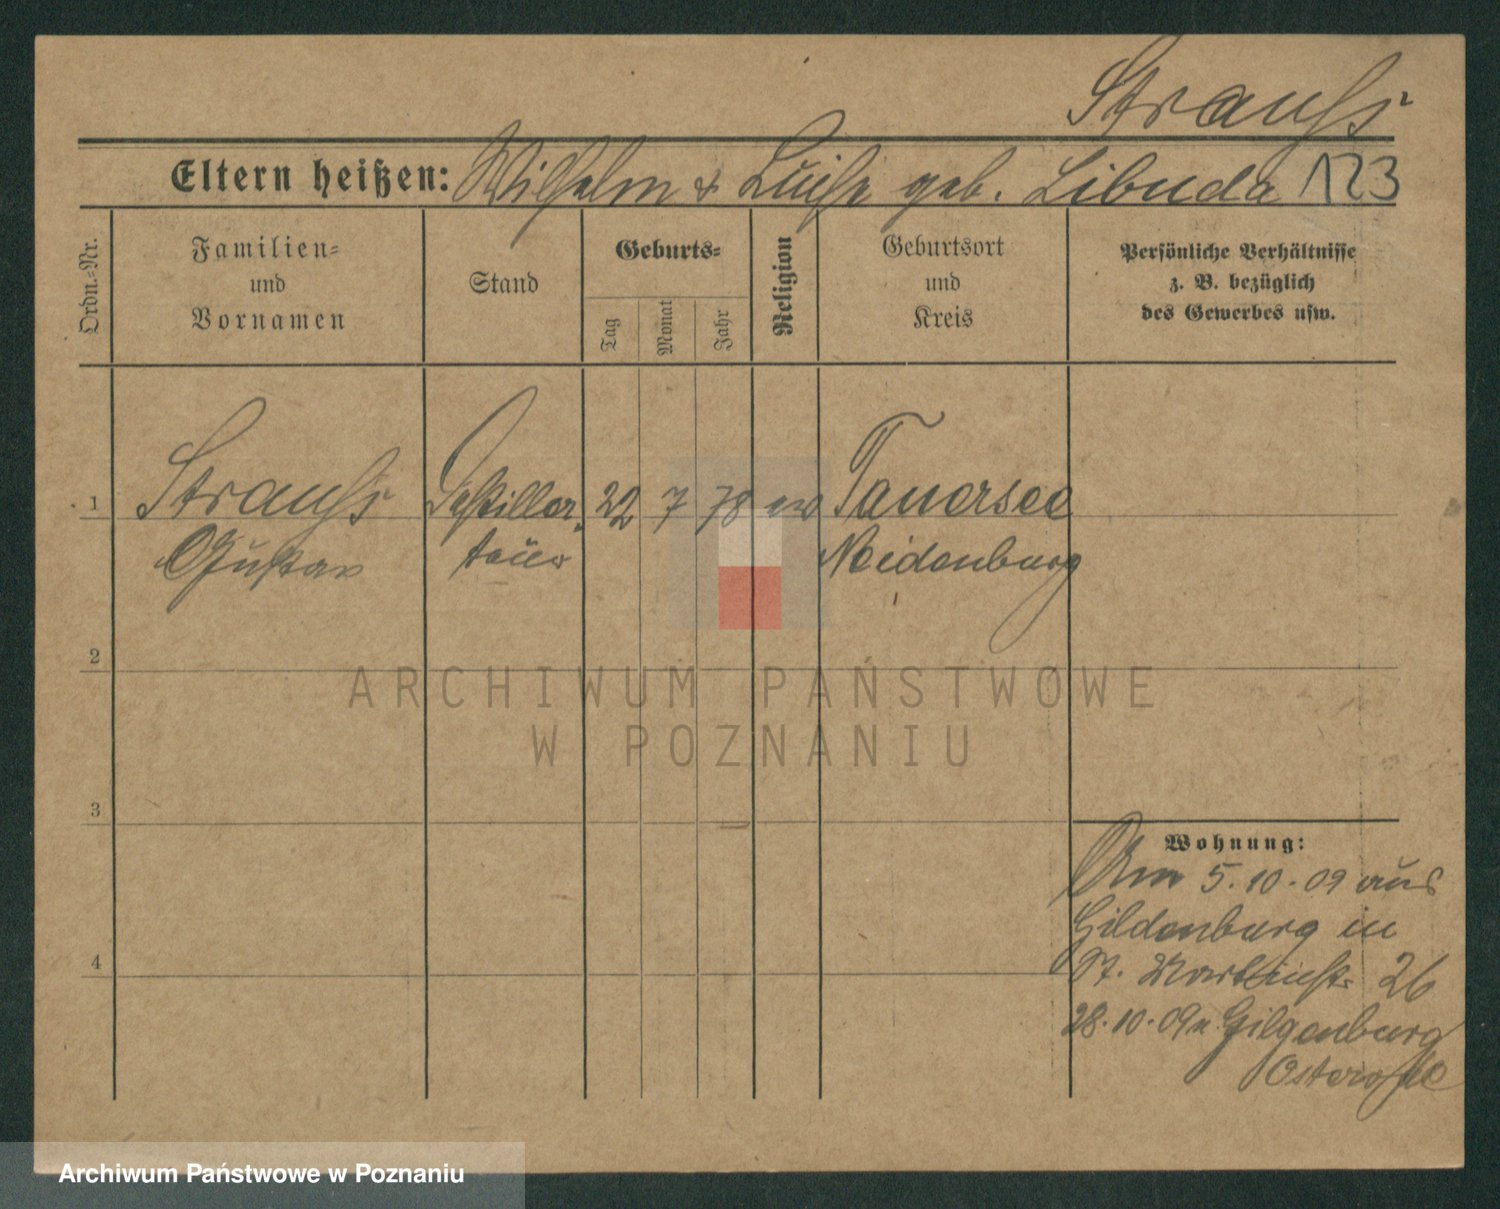 Strauss
Eltern heißen: Wilhelm & Luise geb. Libuda 123
Ordn.=Nr.
Familien=
und
Vornamen
Stand
Geburts=
Tag
Monat
Jahr
Religion
Geburtsort
und
Kreis
Persönliche Verhältnisse
z. B. bezüglich
des Gewerbes usw.
1 Strauss Destilla- 22 7 78 ev Tauersee
Gustav teur Neidenburg
2
ARCHIWUM PAŃSTWOWE
W POZNANIU
3
Wohnung:
Am 5.10.09 aus
Gildenburg in
St. Martinstr 26
4
28.10.09 n. Gilgenburg
Osterode
Archiwum Państwowe w Poznaniu